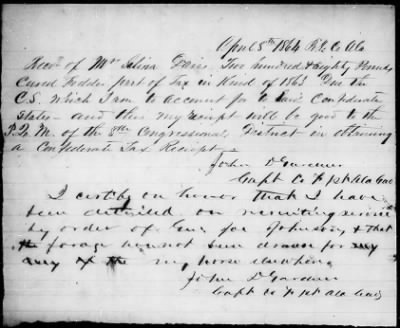 April 8th 1864 R. Co Ala
Recd of Mrs Selina Davis Two hundred & Eighty Pounds
Cured Fodder part of Tax in Kind of 1863 Due the
C.S. Which I am to account for to said Confederate
States - and this my receipt will be good to the
P.Q.M. of the 8th Congressional District in obtaining
a Confederate Tax Receipt
John D Gardner
Capt Co Ala Cav
I certify on honor that I have
been detailed on recruiting service
by order of Gen Joe Johnston, & that
forage has not been drawn for my
horse elsewhere
John D Gardner
Capt Co Ala Cav